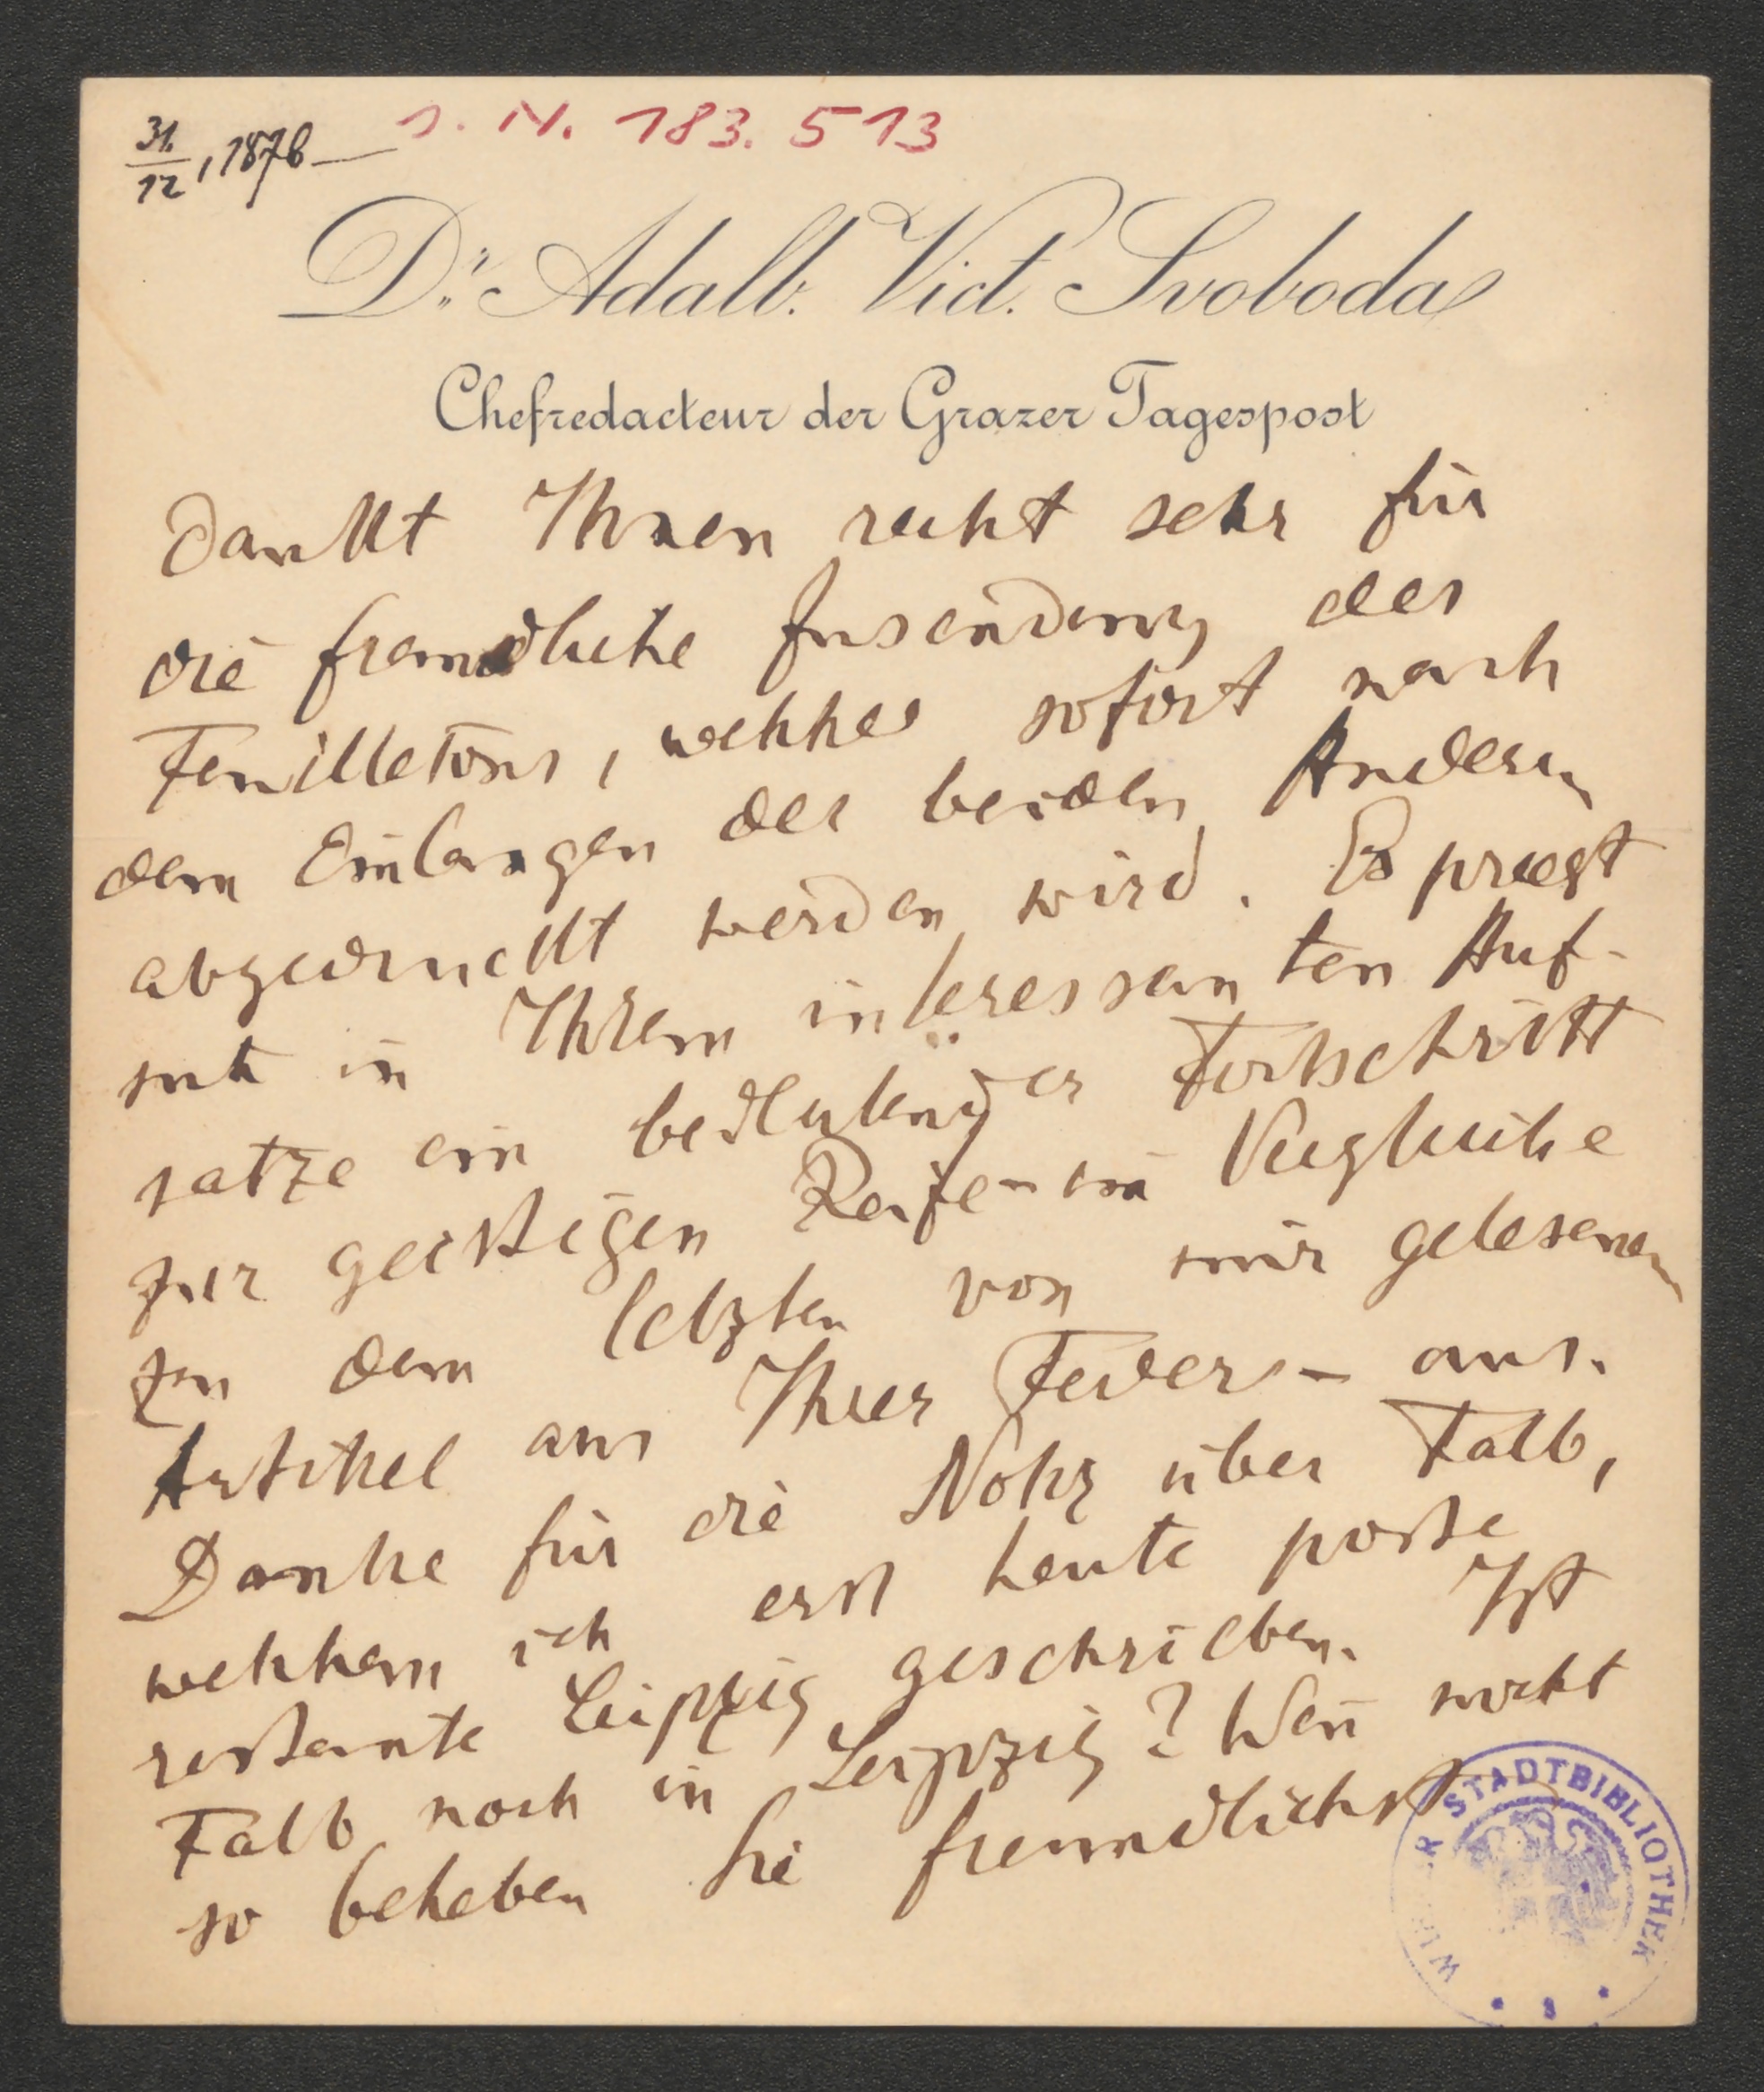 31./12, 1876 — I. N. 183.513
Dr. Adalb. Vict. Svoboda
Chefredacteur der Grazer Tagespost
dankt Ihnen recht sehr für
die freundliche Zusendung des
Feuilletons, welches sofort nach
dem Einlangen der beiden Anderen
abgedruckt werden wird. Es praegt
sich in Ihrem interessanten Auf-
satze ein bedeutender Fortschritt
zur geistigen Reife – im Vergleiche
zu dem letzten von mir gelesenen
Artikel aus Ihrer Feder – aus.
Danke für die Notiz über Falb,
welchem ich erst heute poste
restante Leipzig geschrieben. Ist
Falb noch in Leipzig? Wenn nicht
so beheben Sie freundlichst
WIENER STADTBIBLIOTHEK